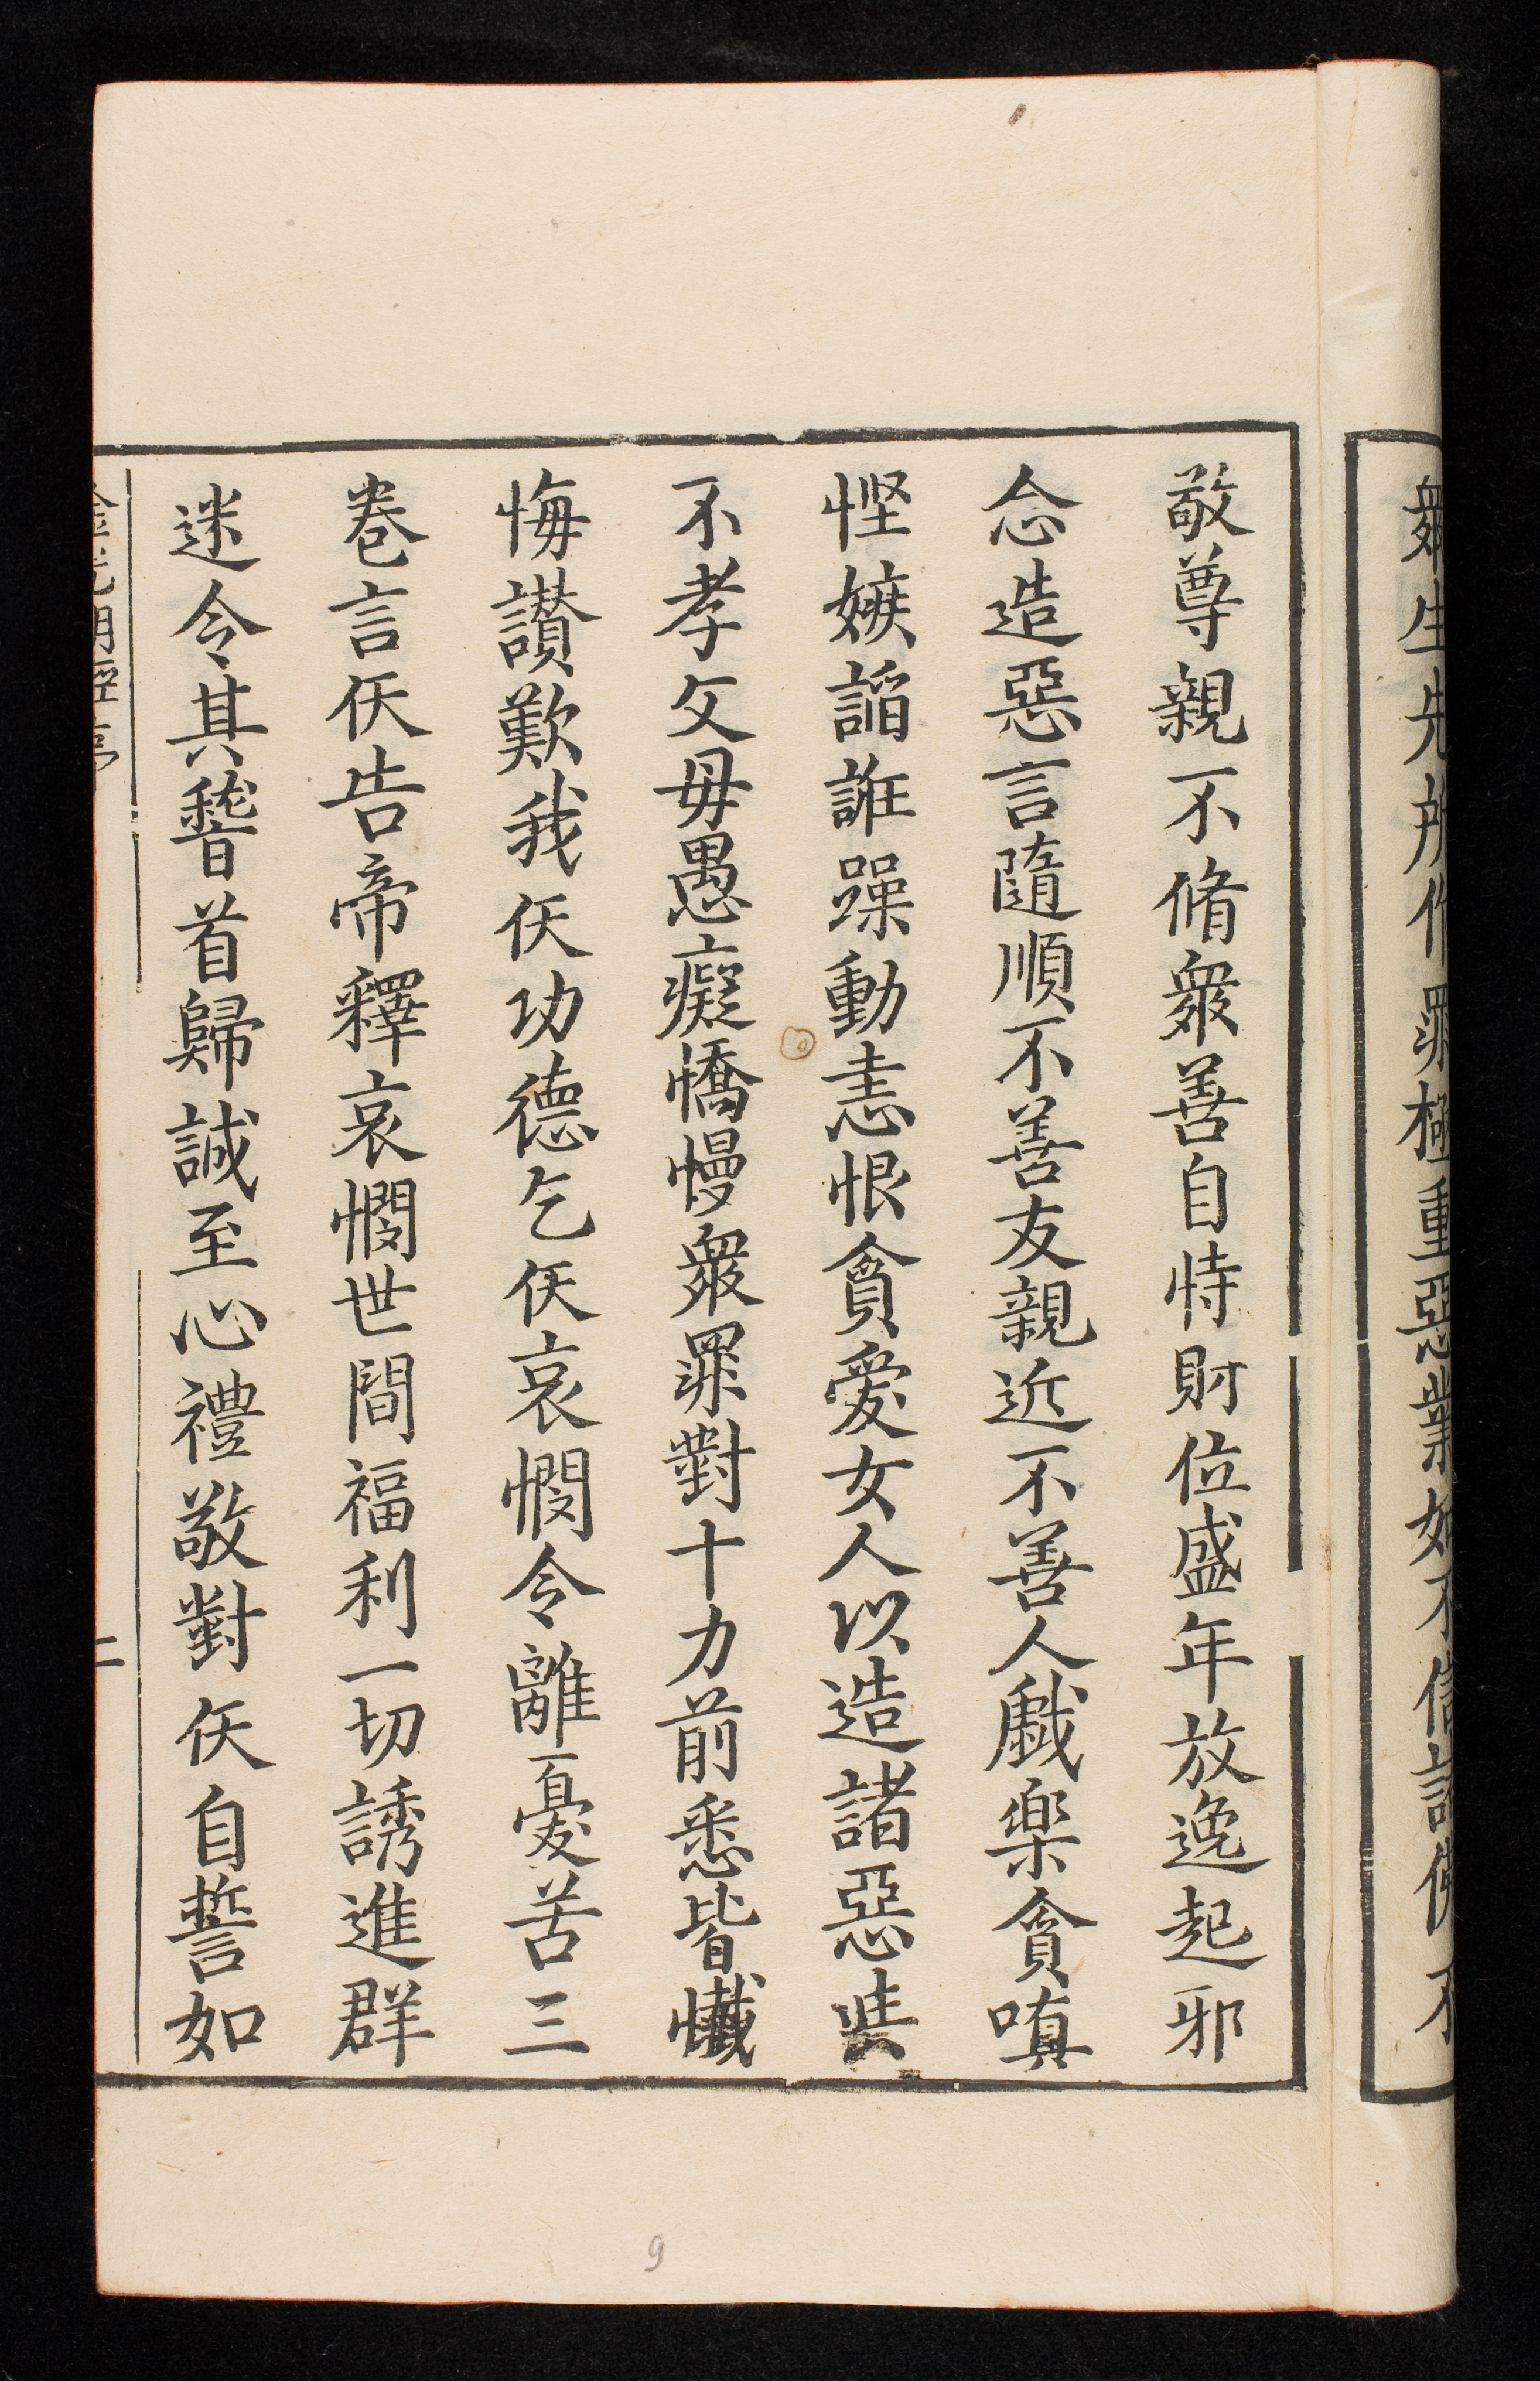 衆生先所作罪極重惡業如不信諸佛不
敬尊親不脩衆善自恃財位盛年放逸起邪
念造惡言隨順不善友親近不善人戱樂貪嗔
慳嫉謟誑躁動恚恨貪愛女人以造諸惡
不孝父母愚癡憍慢衆罪對十力前悉皆懺
悔讃歎我仸功德乞仸哀憫令離憂苦三
卷言仸告帝釋哀憫世間福利一切誘進群
迷令其稽首歸誠至心禮敬對仸自誓如
金光明經序 二
9